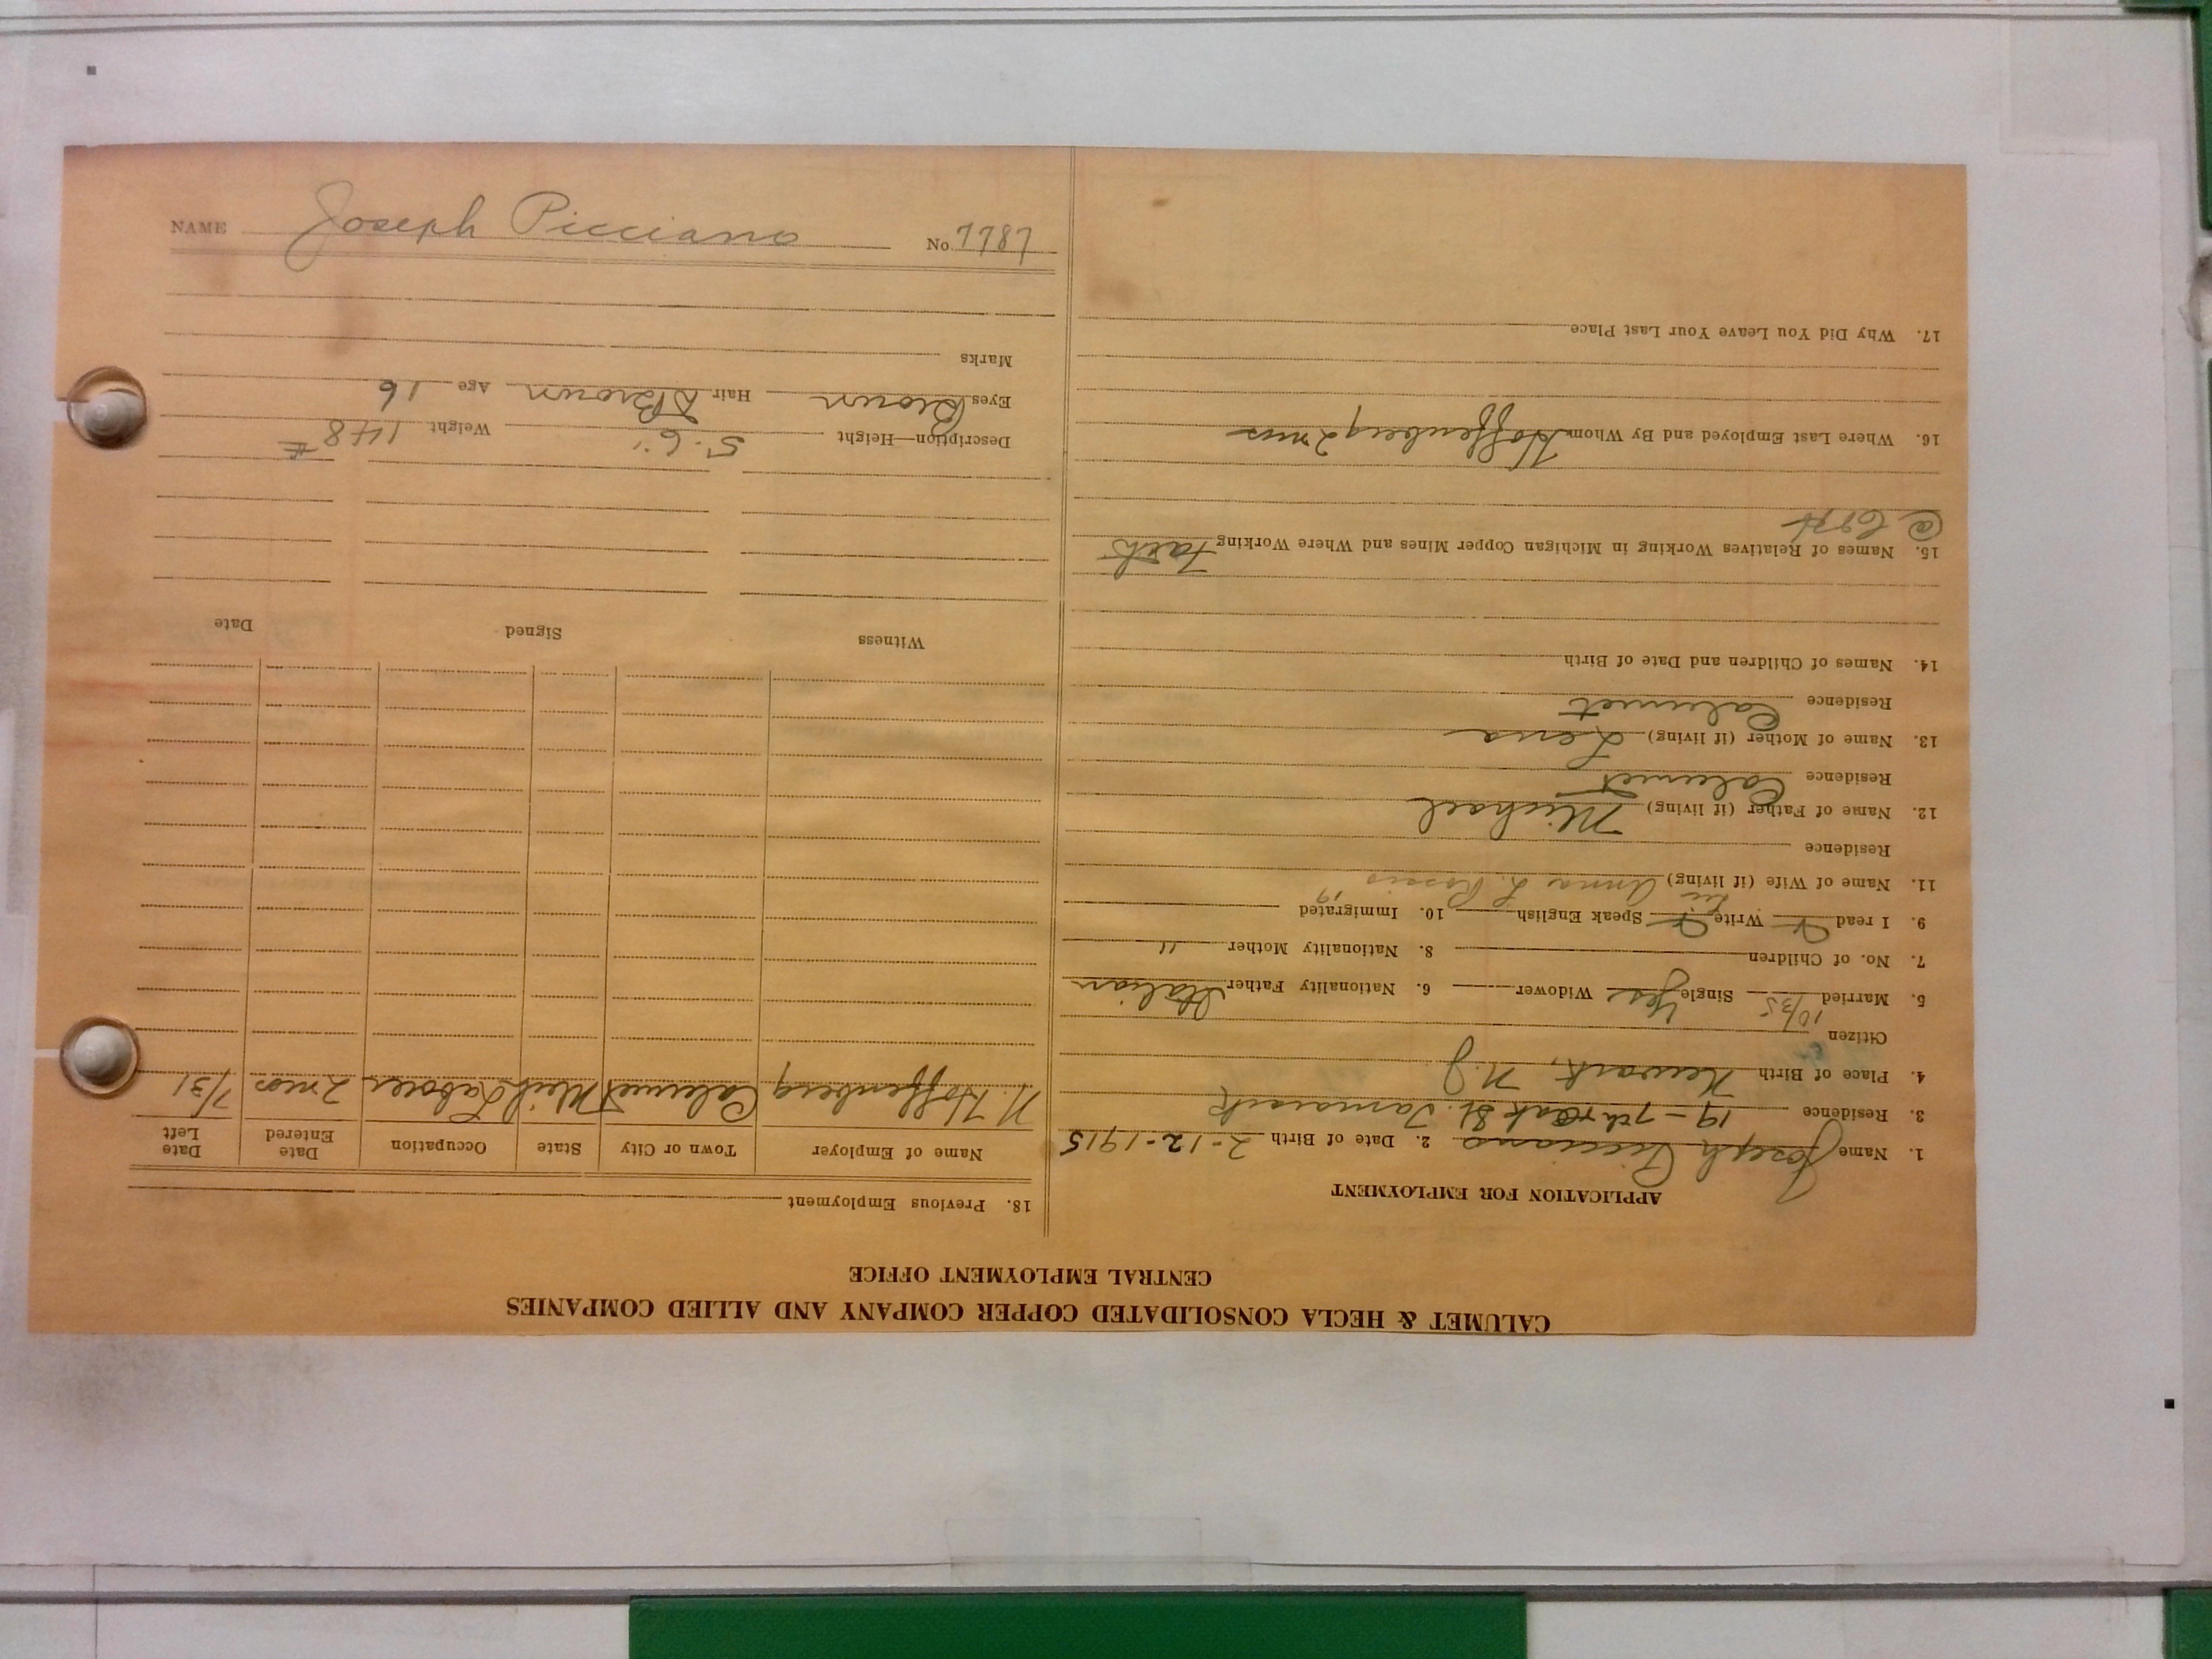 CALUMET & HECLA CONSOLIDATED COPPER COMPANY AND ALLIED COMPANIES
CENTRAL EMPLOYMENT OFFICE
APPLICATION FOR EMPLOYMENT
1. Name Joseph Picciano 2. Date of Birth 2-12-1915
3. Residence 19 - 7th & Oak St. Tamarack
4. Place of Birth Newark, N.J.
Citizen
5. Married 10/35 Single Yes Widower 6. Nationality Father Italian
7. No. of Children 8. Nationality Mother "
9. I read Write Speak English 10. Immigrated
11. Name of Wife (if living) Anna L.
Residence
12. Name of Father (if living) Michael
Residence Calumet
13. Name of Mother (if living) Lena
Residence Calumet
14. Names of Children and Date of Birth
15. Names of Relatives Working in Michigan Copper Mines and Where Working Fath
16. Where Last Employed and By Whom Hoffenberg 2 mos
17. Why Did You Leave Your Last Place
18. Previous Employment
Name of Employer Town or City State Occupation Date Entered Date Left
N. Hoffenberg Calumet Mich Laborer 2 mos 7/31
Witness Signed Date
Description—Height 5'.6" Weight 148 #
Eyes Brown Hair D Brown Age 16
Marks
NAME Joseph Picciano No. 7787